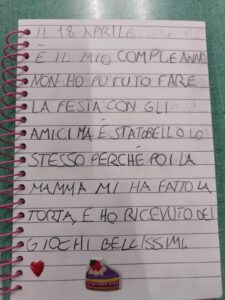 IL 18 APRILE
È IL MIO COMPLEANNO
NON HO POTUTO FARE
LA FESTA CON GLI
AMICI MA È STATO BELLO LO
STESSO PERCHÈ POI LA
MAMMA MI HA FATTO LA
TORTA, E HO RICEVUTO DEI
GIOCHI BELLISSIMI.